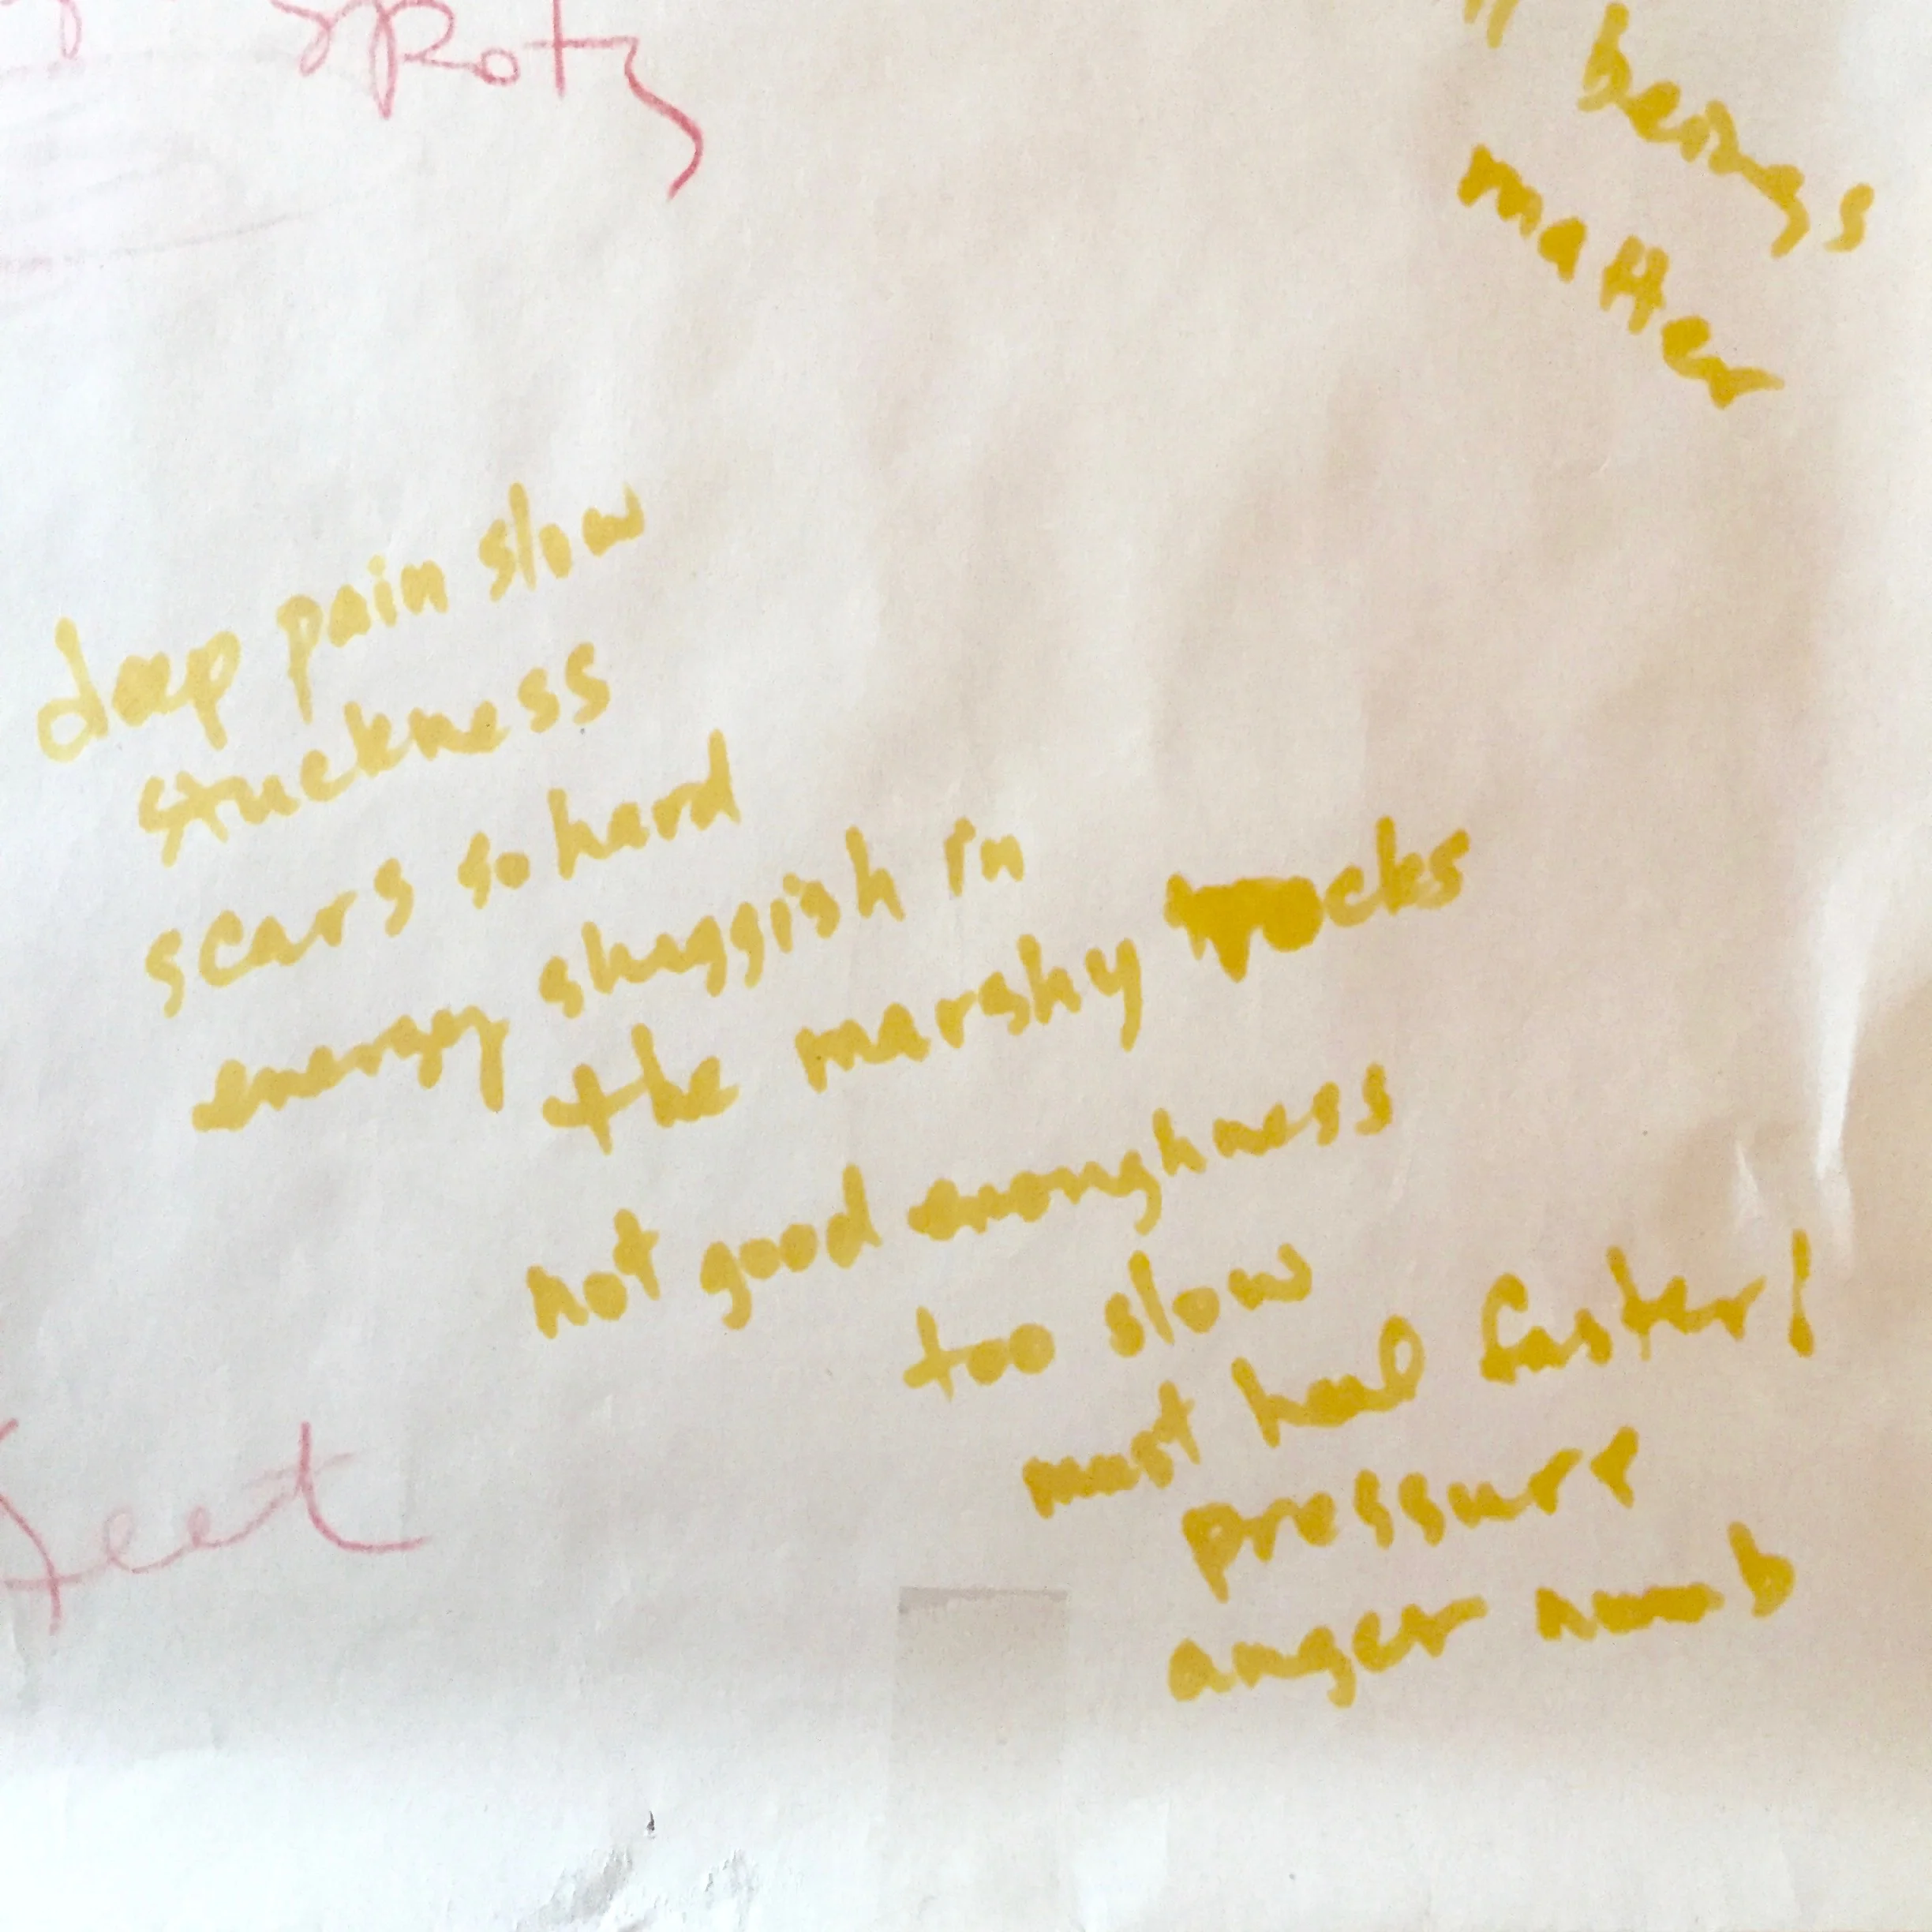 beings
matter
deep pain slow
stuckness
scars so hard
energy sluggish in
the marshy rocks
not good enoughness
too slow
must heal faster!
pressure
anger numb
feet